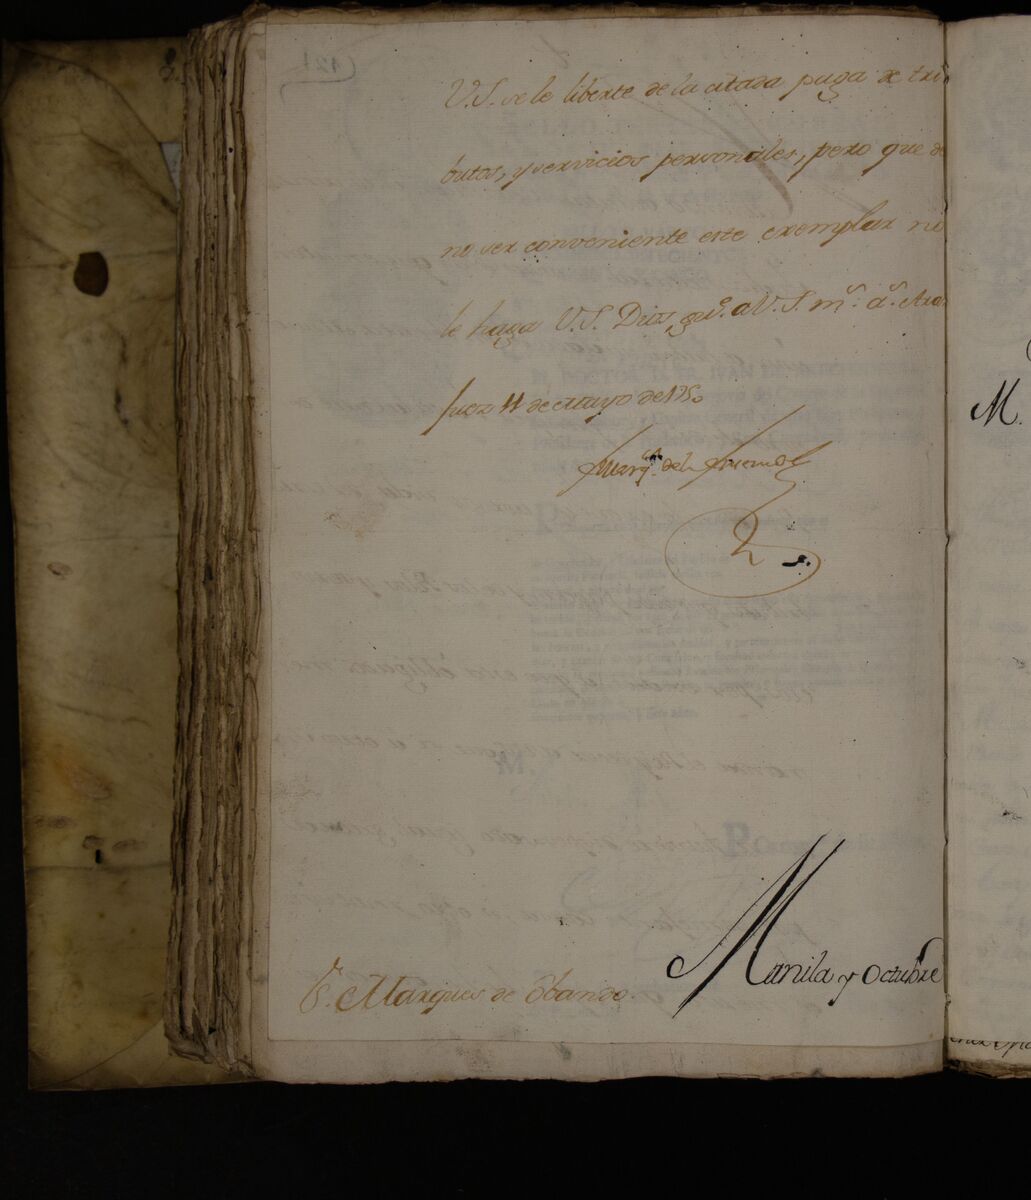 V.S. se le liberte de la citada paga de tri
butos, y servicios personales, pero que de
no ser conveniente este exemplar no
le haga V.S. Dios gu.e a V.S. m.s a.s Aran
juez 11 de Mayo de 1750
Marq.s de la Ensenada
S.r Marques de Obando.
Manila y Octubre
M.